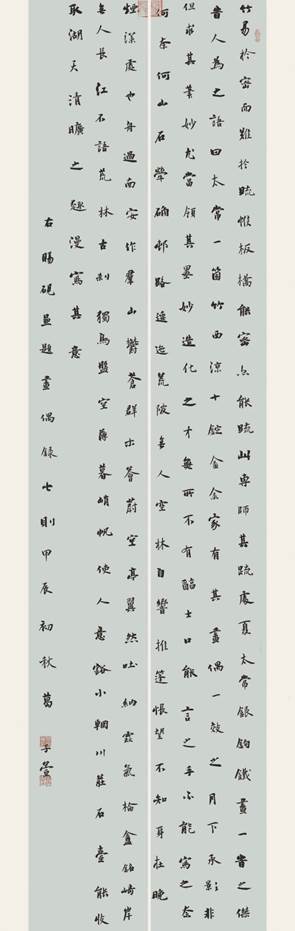 竹易於密而難於疏惟板橋能密亦能疏此專師其疏處夏太常銀鉤鐵畫一時之傑
昔人為之語曰太常一箇竹西涼十錠金余家有其畫偶一效之月下承影非
但求其葉妙尤當領其罨妙造化之才無所不有韻士口能言之手不能寫之奈
何奈何山石犖确邨路逶迤荒陂無人空林自響推篷悵望不知身在晚
煙深處也舟過南安作羣山鬱蒼群木薈蔚空亭翼然吐納雲氣檢盦銘崎岸
無人長江不語荒林古刹獨鳥盤空薄暮峭帆使人意豁小輞川莊石壺能收
取湖天清曠之趣漫寫其意
右賜硯堂題畫偶錄七則甲辰初秋葛子萱